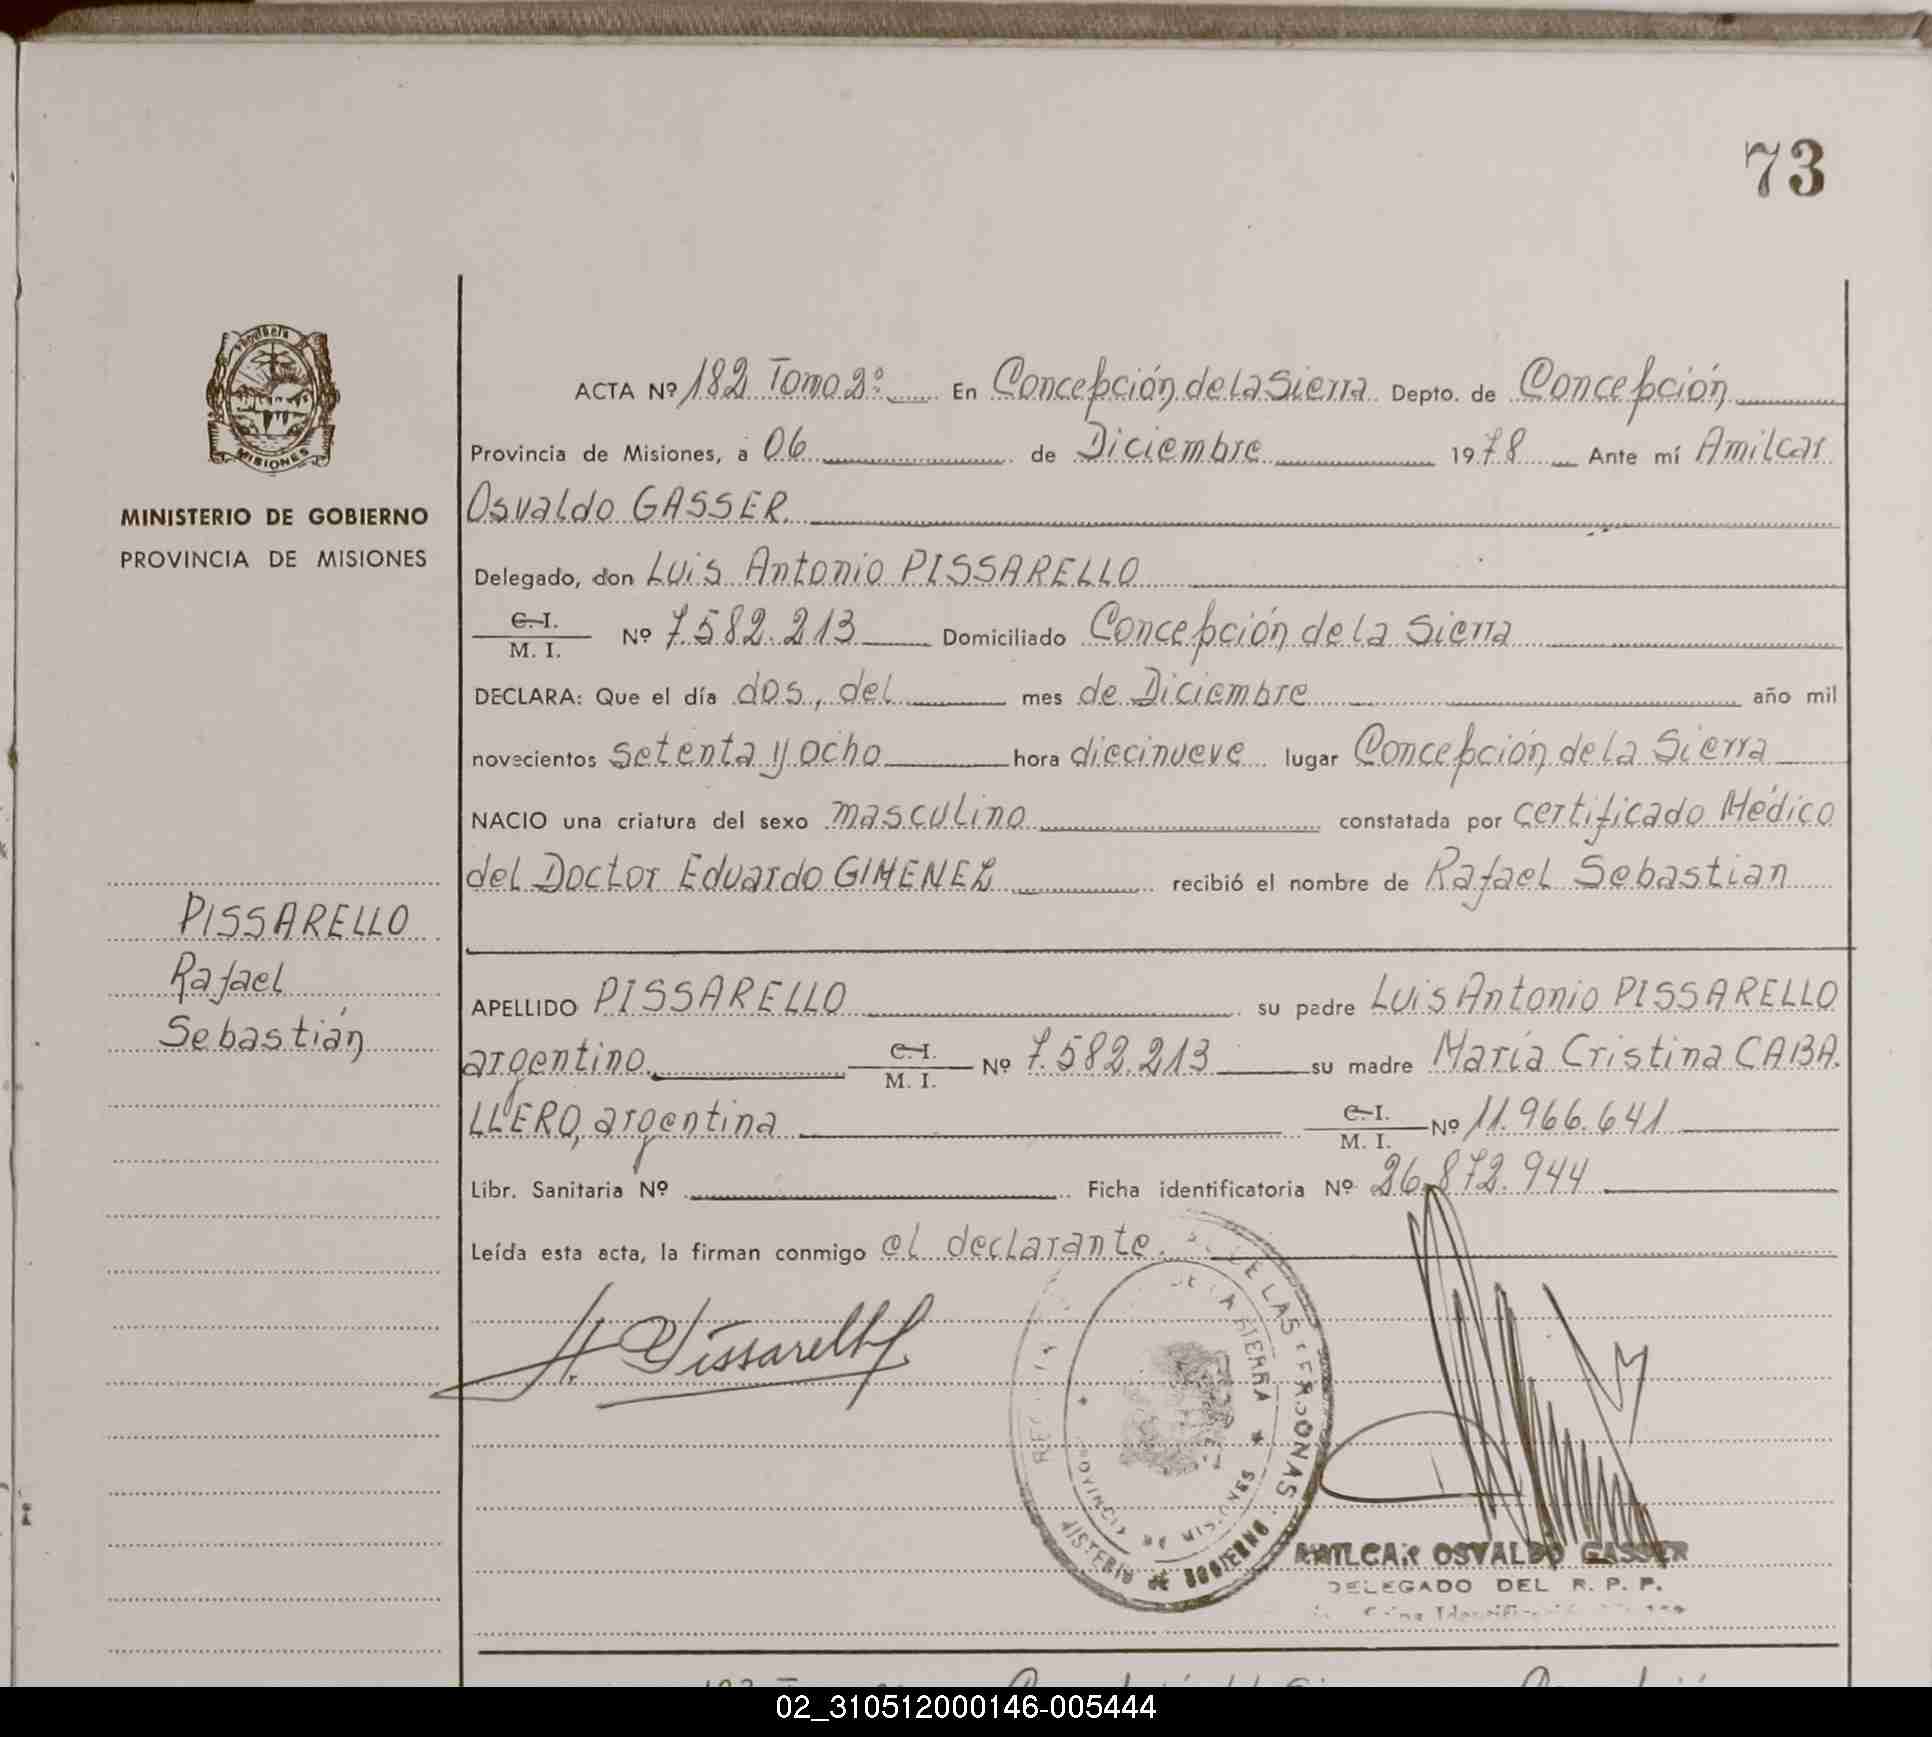 73
PROVINCIA
MISIONES
MINISTERIO DE GOBIERNO
PROVINCIA DE MISIONES
PISSARELLO
Rafael
Sebastián
ACTA Nº 182 Tomo 2º En Concepción de la Sierra Depto. de Concepción
Provincia de Misiones, a 06 de Diciembre 1978 Ante mí Amilcar
Osvaldo GASSER
Delegado, don Luis Antonio PISSARELLO
C.I.
M. I. Nº 7.582.213 Domiciliado Concepción de la Sierra
DECLARA: Que el día dos, del mes de Diciembre año mil
novecientos setenta y ocho hora diecinueve lugar Concepción de la Sierra
NACIO una criatura del sexo masculino constatada por certificado Médico
del Doctor Eduardo GIMENEZ recibió el nombre de Rafael Sebastian
APELLIDO PISSARELLO su padre Luis Antonio PISSARELLO
argentino C.I.
M. I. Nº 7.582.213 su madre María Cristina CABA.
LLERO, argentina C.I.
M. I. Nº 11.966.641
Libr. Sanitaria Nº Ficha identificatoria Nº 26.872.944
Leída esta acta, la firman conmigo el declarante.
Pissarello
DE LAS PERSONAS
SIERRA
PROVINCIA DE MISIONES
MINISTERIO DE GOBIERNO
AMILCAR OSVALDO GASSER
DELEGADO DEL R. P. P.
02_310512000146-005444